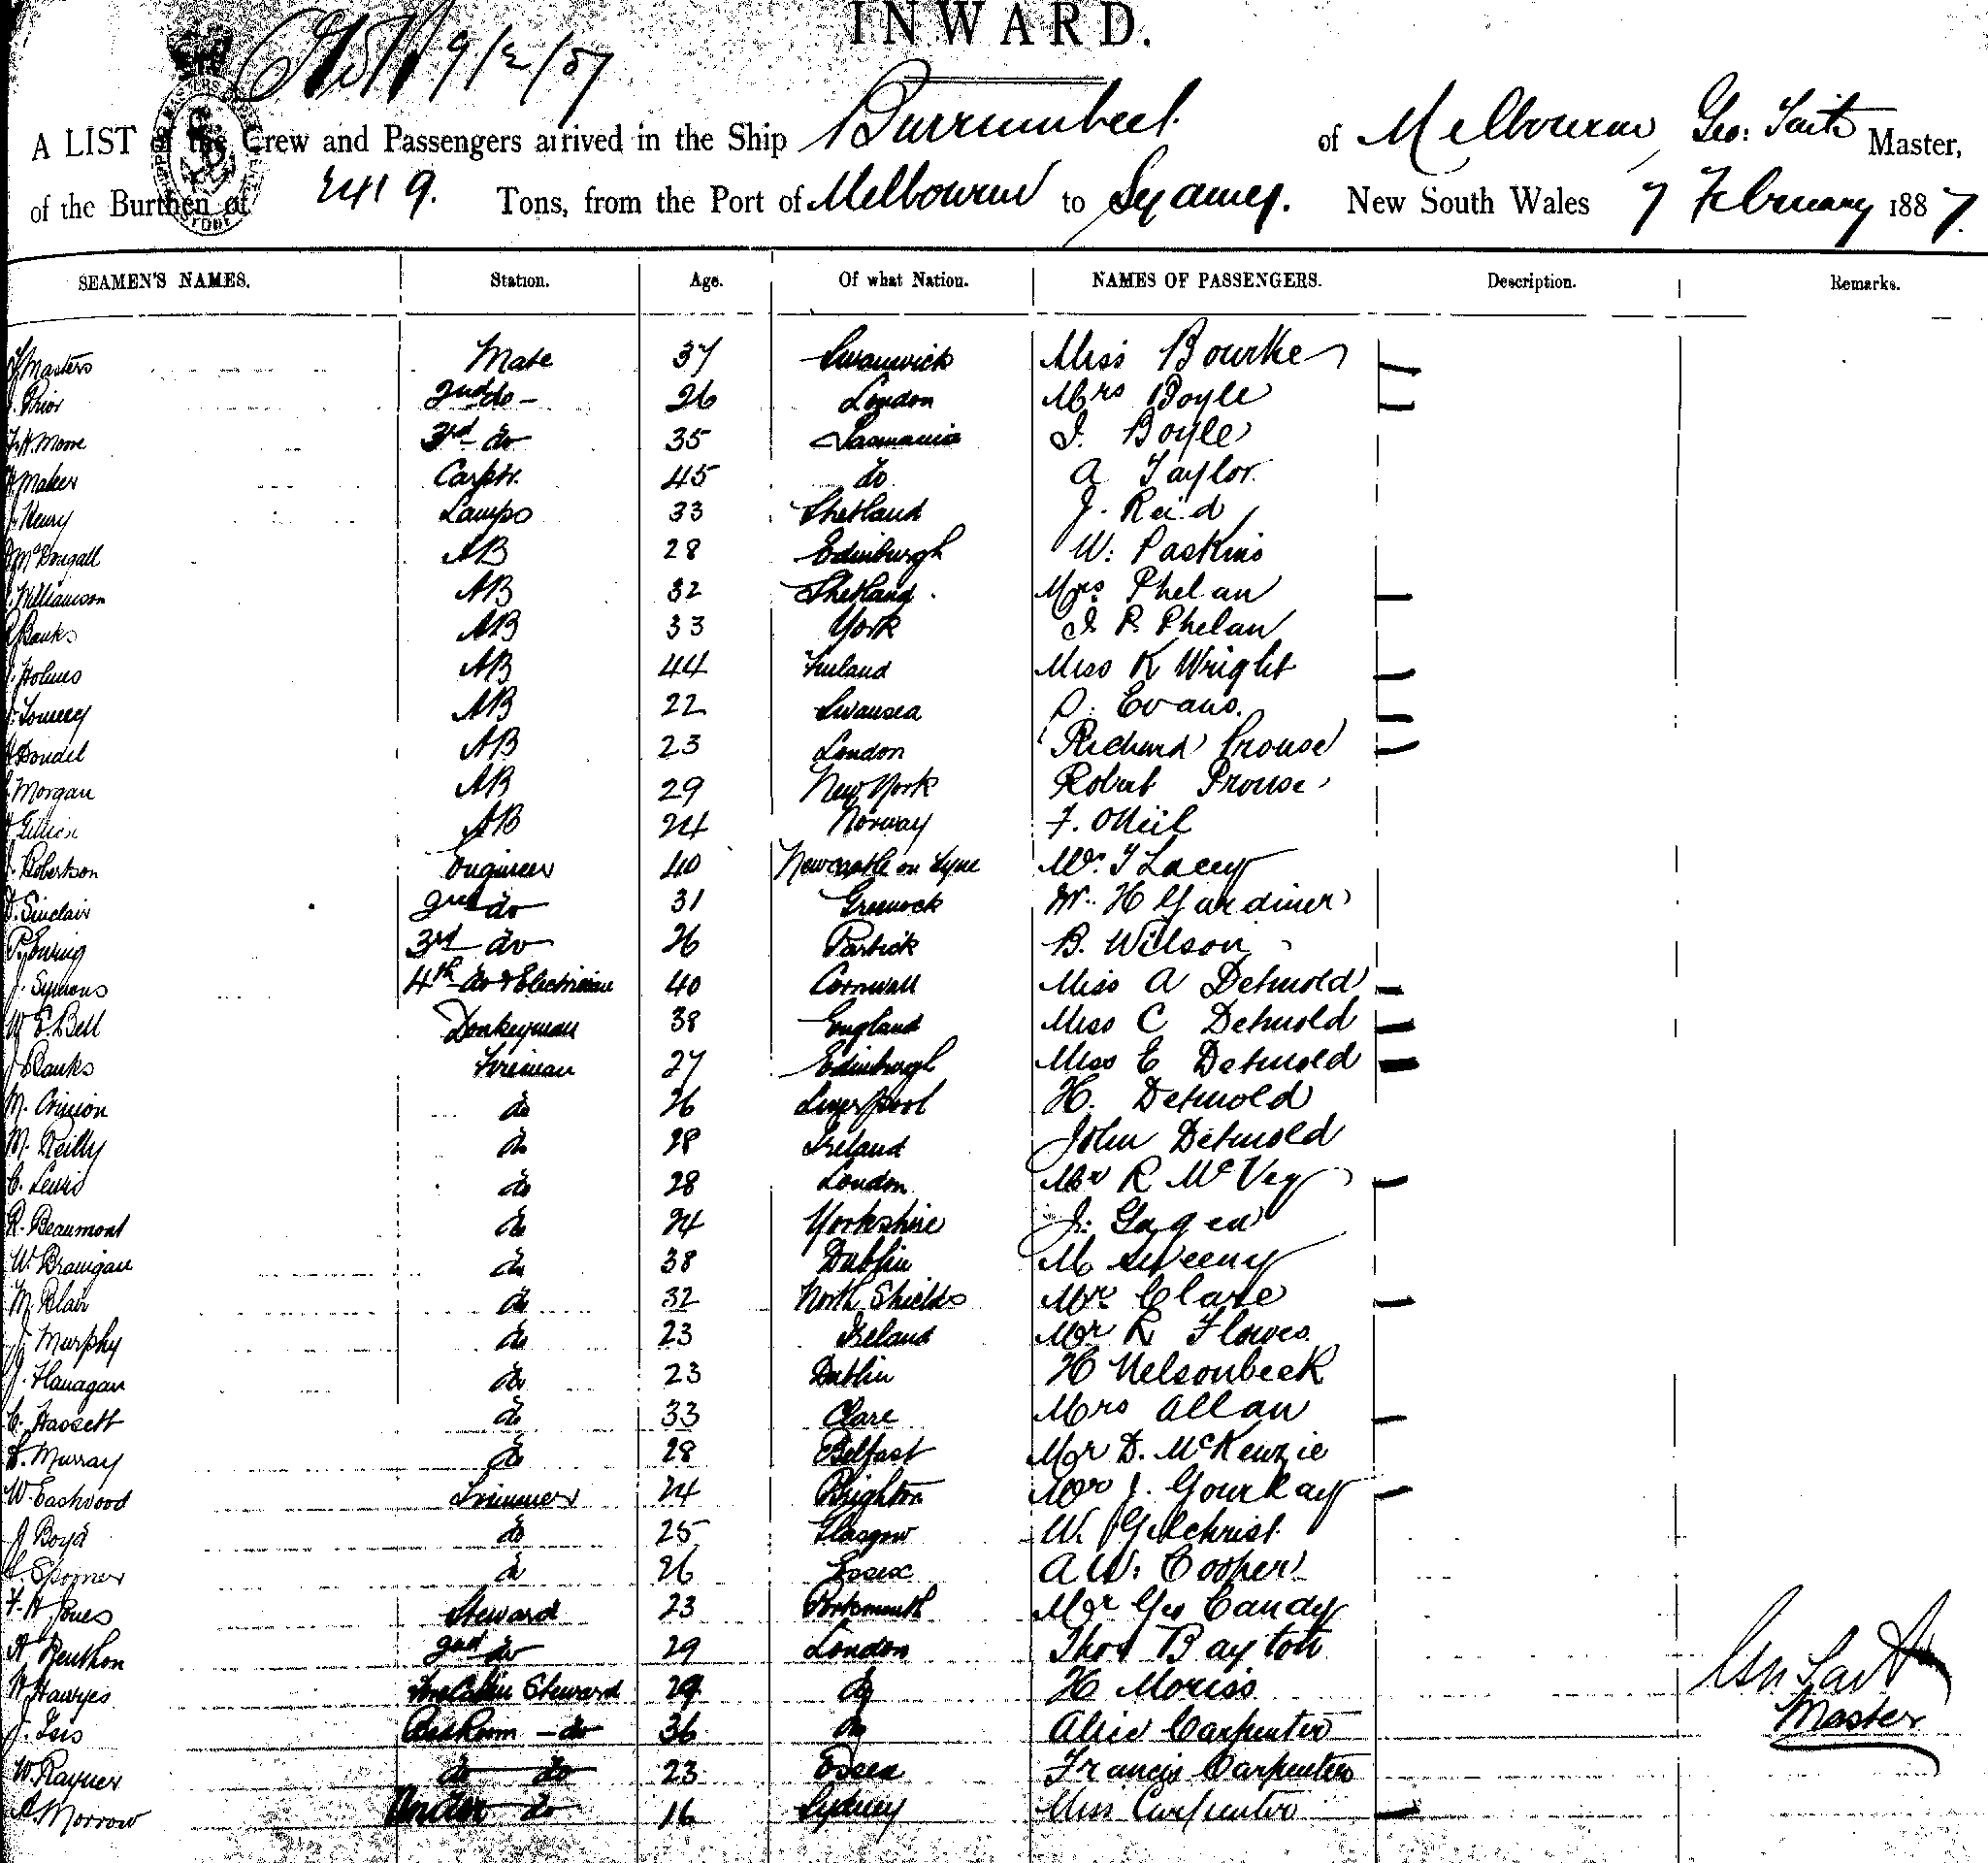 INWARD.
9/2/87
A LIST of the Crew and Passengers arrived in the Ship Burrumbeet. of Melbourne Geo: Tait Master,
of the Burthen of 2419. Tons, from the Port of Melbourne to Sydney. New South Wales 7 February 1887.
SEAMEN'S NAMES. Station. Age. Of what Nation. NAMES OF PASSENGERS. Description. Remarks.
Masters Mate 37 Swanwick Miss Bourke
Prior 2nd do - 26 London Mrs Boyle
F. H. Moore 3rd do 35 Tasmania J. Boyle
Maker Carptr. 45 do A Taylor.
Henry Lamps 33 Shetland J. Reid
McDougall AB 28 Edinburgh W: Paskins
Williamson AB 32 Shetland. Mrs Phelan
Banks AB 33 York J. P. Phelan
Holmes AB 44 Finland Miss K Wright
AB 22 Swansea D. Evans.
Dondel AB 23 London Richard Prouse
Morgan AB 29 New York Robert Prouse
AB 24 Norway F. ONeil
Robertson Engineer 40 Newcastle on Tyne Mr. T Lacey
D. Sinclair 2nd do 31 Greenock W. H Gardiner
P. Ewing 3rd do 26 Partick B. Wilson
J. Symons 4th do & Electrician 40 Cornwall Miss A Detmold
W E. Bell Donkeyman 38 England Miss C Detmold
J Banks Fireman 27 Edinburgh Miss E Detmold
M. do 26 Liverpool H. Detmold
M. Reilly do 28 Ireland John Detmold
C. Lewis do 28 London Mr R McVey
R. Beaumont do 24 Yorkshire J. Gagen
W. Branigan do 38 Dublin M Sweeny
M. Blair do 32 North Shields Mrs Clare
J. Murphy do 23 Ireland Mr R Flowes
J. Flanagan do 23 Dublin H Nelsonbeck
C. Hassett do 33 Clare Mrs Allan
Murray do 28 Belfast Mr D. McKenzie
W. Eastwood Trimmer 24 Brighton Mr J. Gourlay
J Boyd do 25 Glasgow W. Gilchrist
Spooner do 26 Essex A W. Cooper
F. H Jones Steward 23 Portsmouth Mr Geo Candy
A Renthon 2nd do 29 London Thos Bayton
Hawyes Fore Cabin Steward 29 do H Moriss
J. Bed Room - do 36 do Alice Carpenter
W. Rayner do do 23 Essex Francis Carpenter
A. Morrow do 16 Sydney Miss Carpenter
Geo Tait
Master